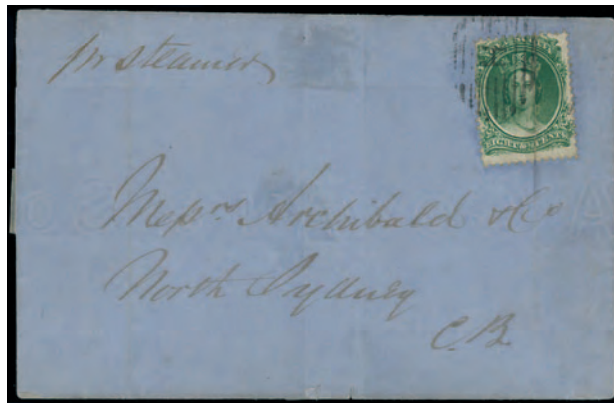 pr steamer
Messrs Archibald & Co
North Sydney
C.B.